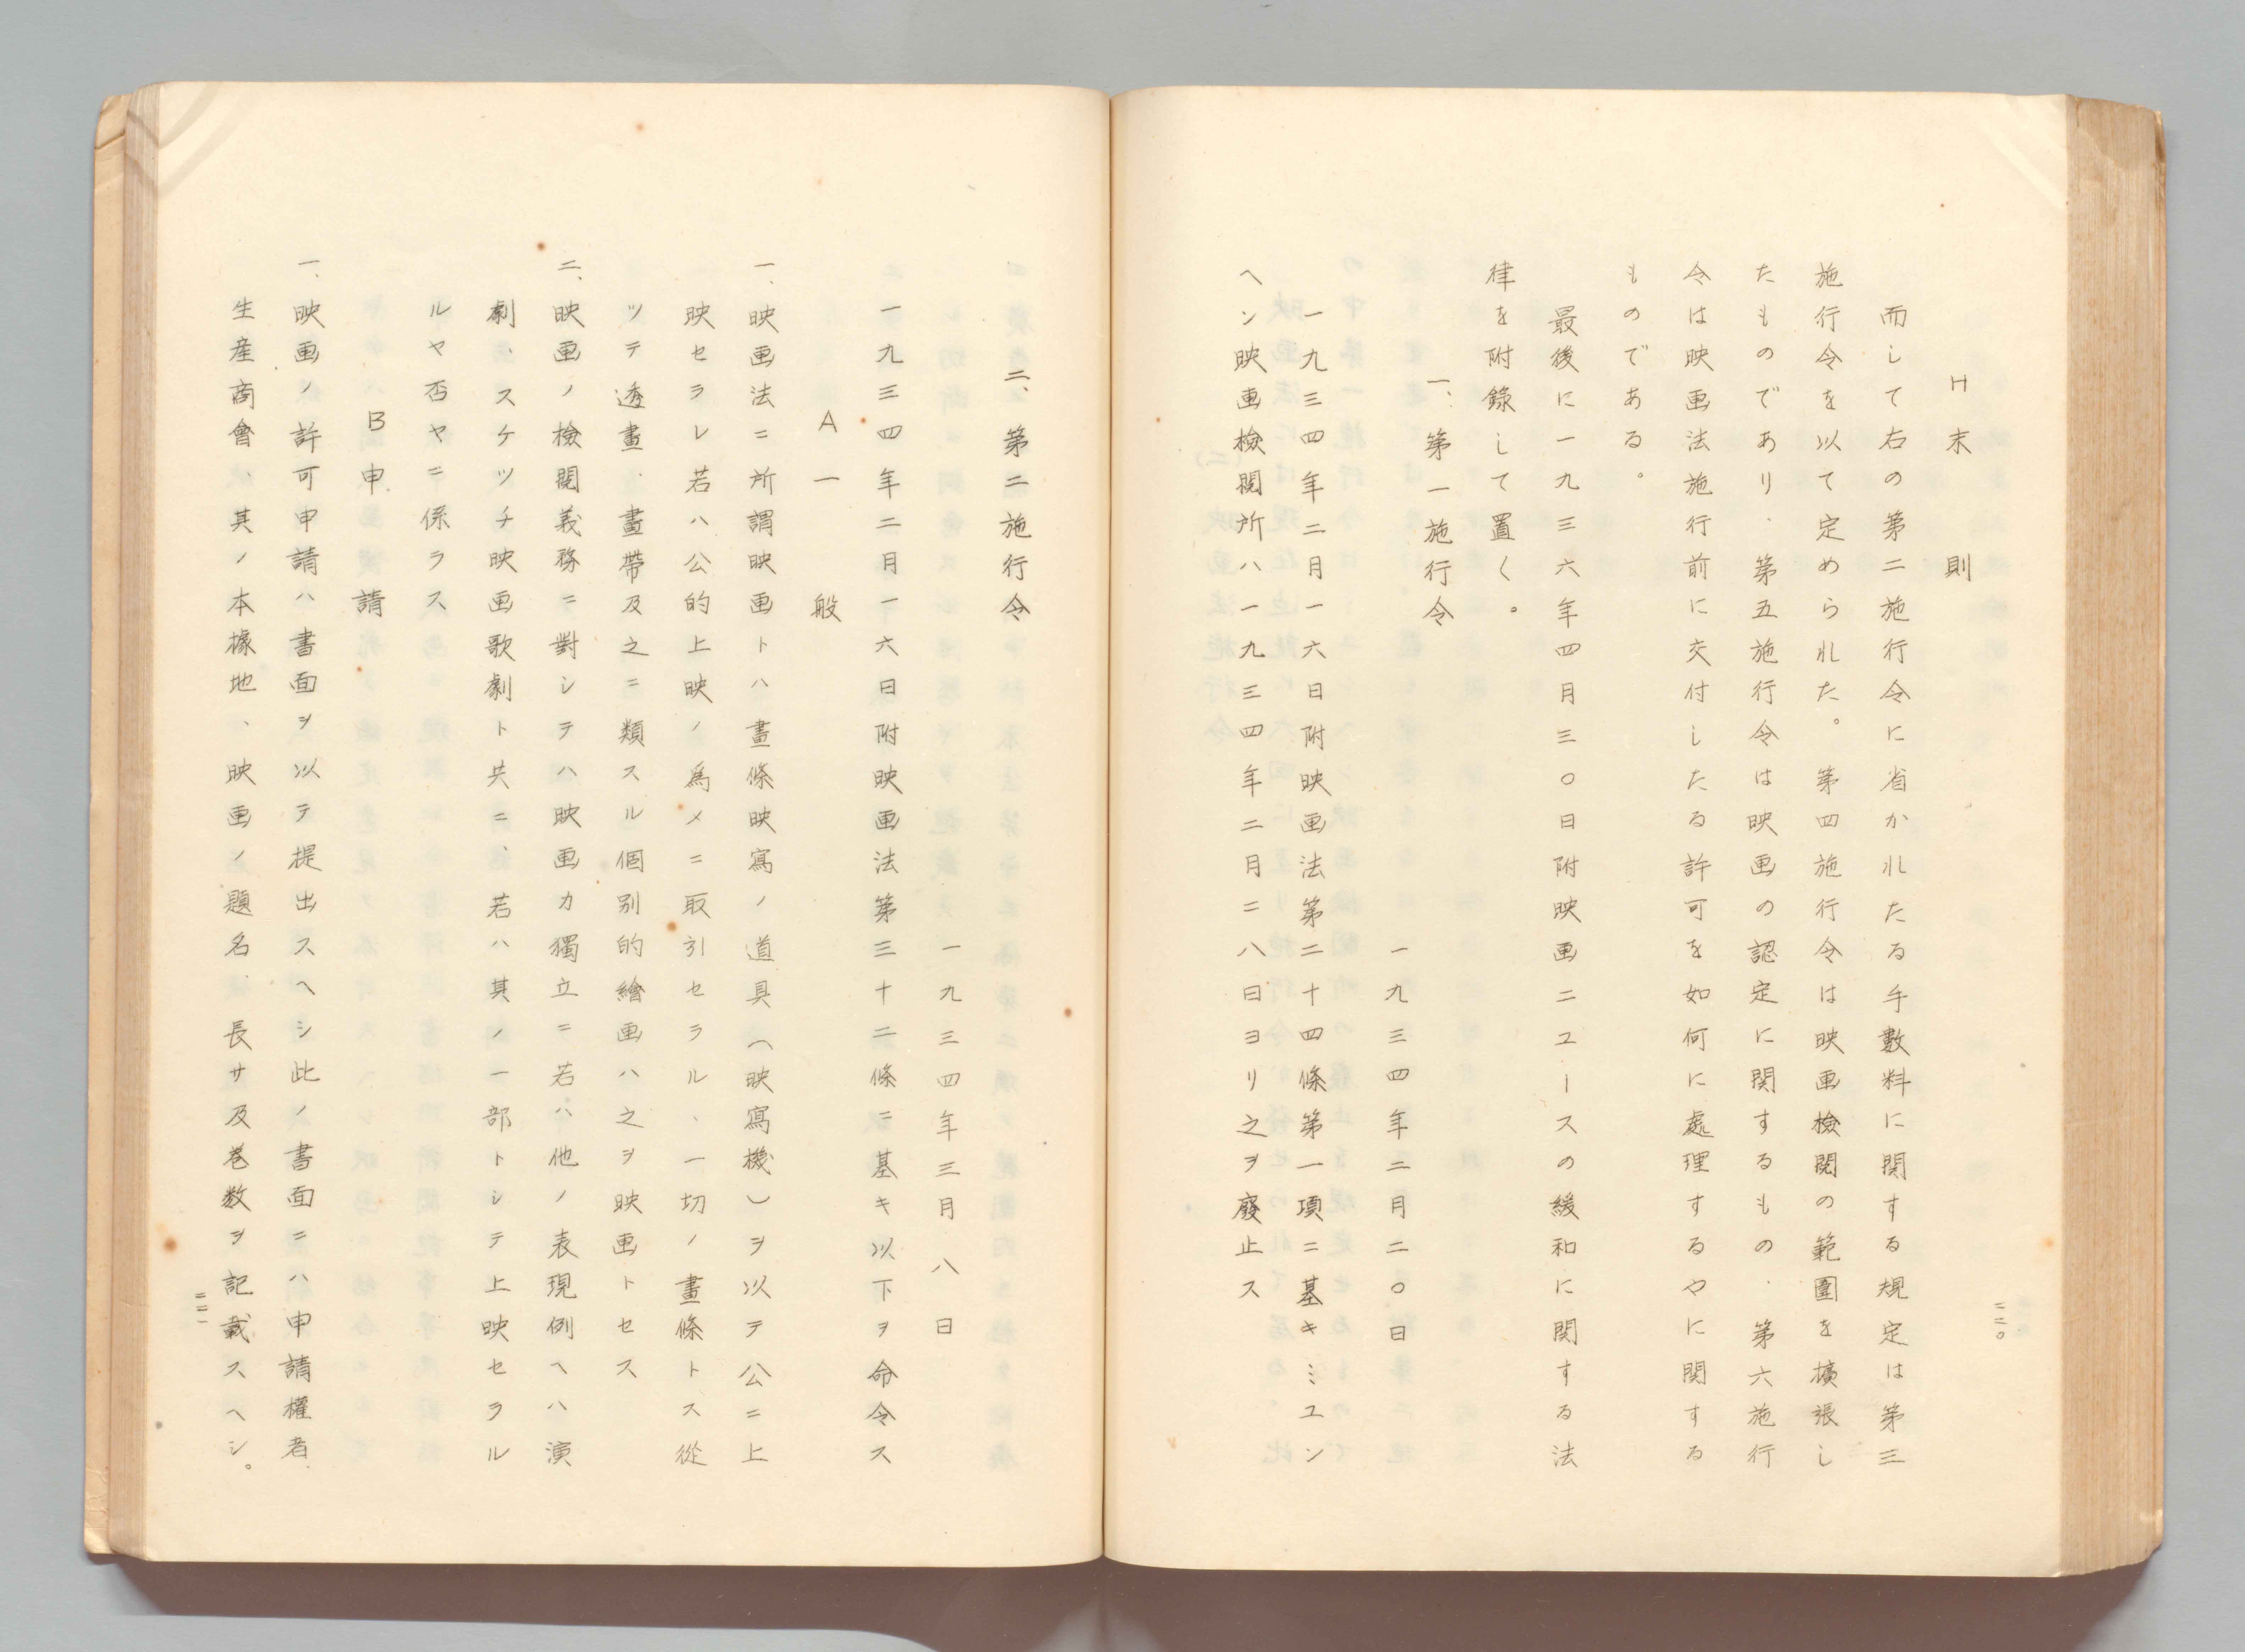 H 末則
而して右の第二施行令に省かれたる手數料に関する規定は第三
施行令を以て定められた。第四施行令は映画檢閲の範圍を擴張し
たものであり、第五施行令は映画の認定に関するもの、第六施行
令は映画法施行前に交付したる許可を如何に處理するやに関する
ものである。
最後に一九三六年四月三〇日附映画ニユースの緩和に関する法
律を附錄して置く。
一、第一施行令
一九三四年二月二〇日
一九三四年二月一六日附映画法第二十四條第一項ニ基キミユン
ヘン映画檢閲所ハ一九三四年二月二八日ヨリ之ヲ廢止ス
二二〇
二、第二施行令
一九三四年三月八日
一九三四年二月一六日附映画法第三十二條ニ基キ以下ヲ命令ス
A 一般
一、映画法ニ所謂映画トハ畫條映寫ノ道具(映寫機)ヲ以テ公ニ上
映セラレ若ハ公的上映ノ爲メニ取引セラル、一切ノ畫條トス從
ツテ透畫、畫帶及之ニ類スル個別的繪画ハ之ヲ映画トセス
二、映画ノ檢閲義務ニ對シテハ映画カ獨立ニ若ハ他ノ表現例ヘハ演
劇、スケツチ映画歌劇ト共ニ、若ハ其ノ一部トシテ上映セラル
ルヤ否ヤニ係ラス
B 申請
一、映画ノ許可申請ハ書面ヲ以テ提出スヘシ此ノ書面ニハ申請權者、
生産商會、其ノ本據地、映画ノ題名、長サ及巻数ヲ記載スヘシ。
二二一